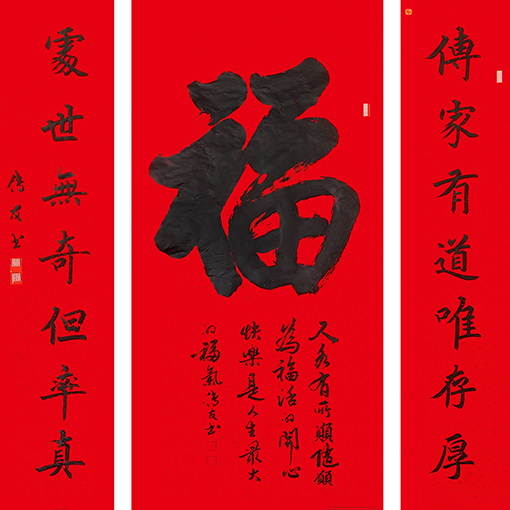 傳家有道唯存厚
福
人各有所願隨願
為福活的開心
快樂是人生最大
的福氣傳友书
處世無奇但率真
傳友书